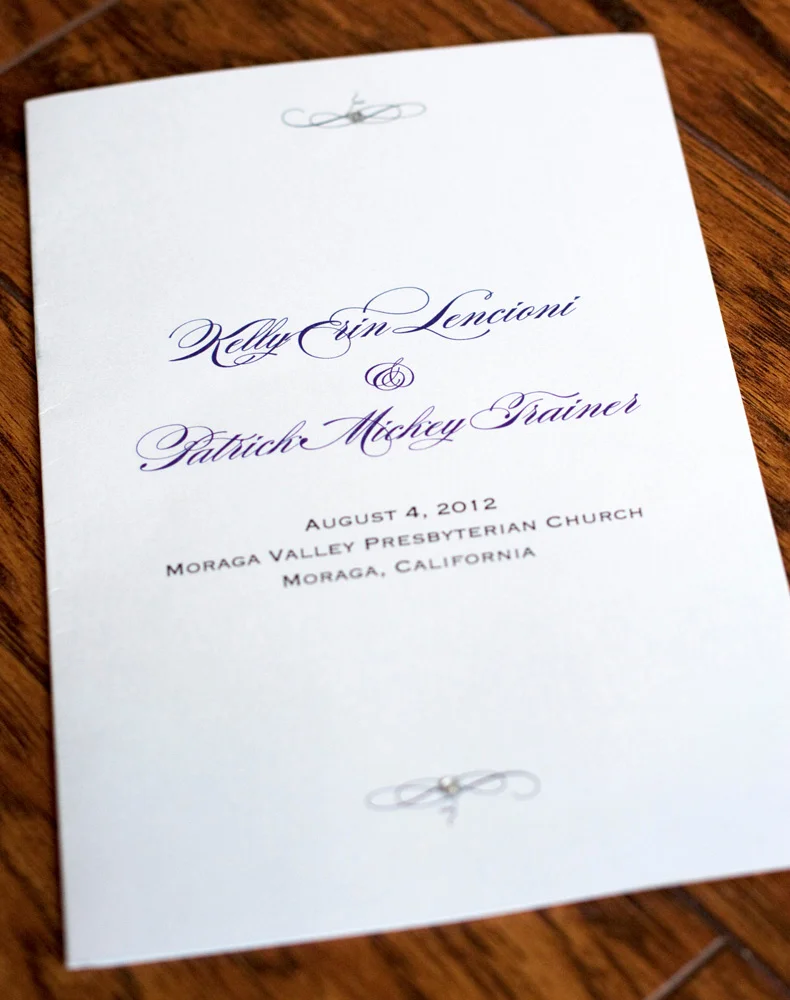 Kelly Erin Lencioni
&
Patrick Mickey Trainer
August 4, 2012
Moraga Valley Presbyterian Church
Moraga, California